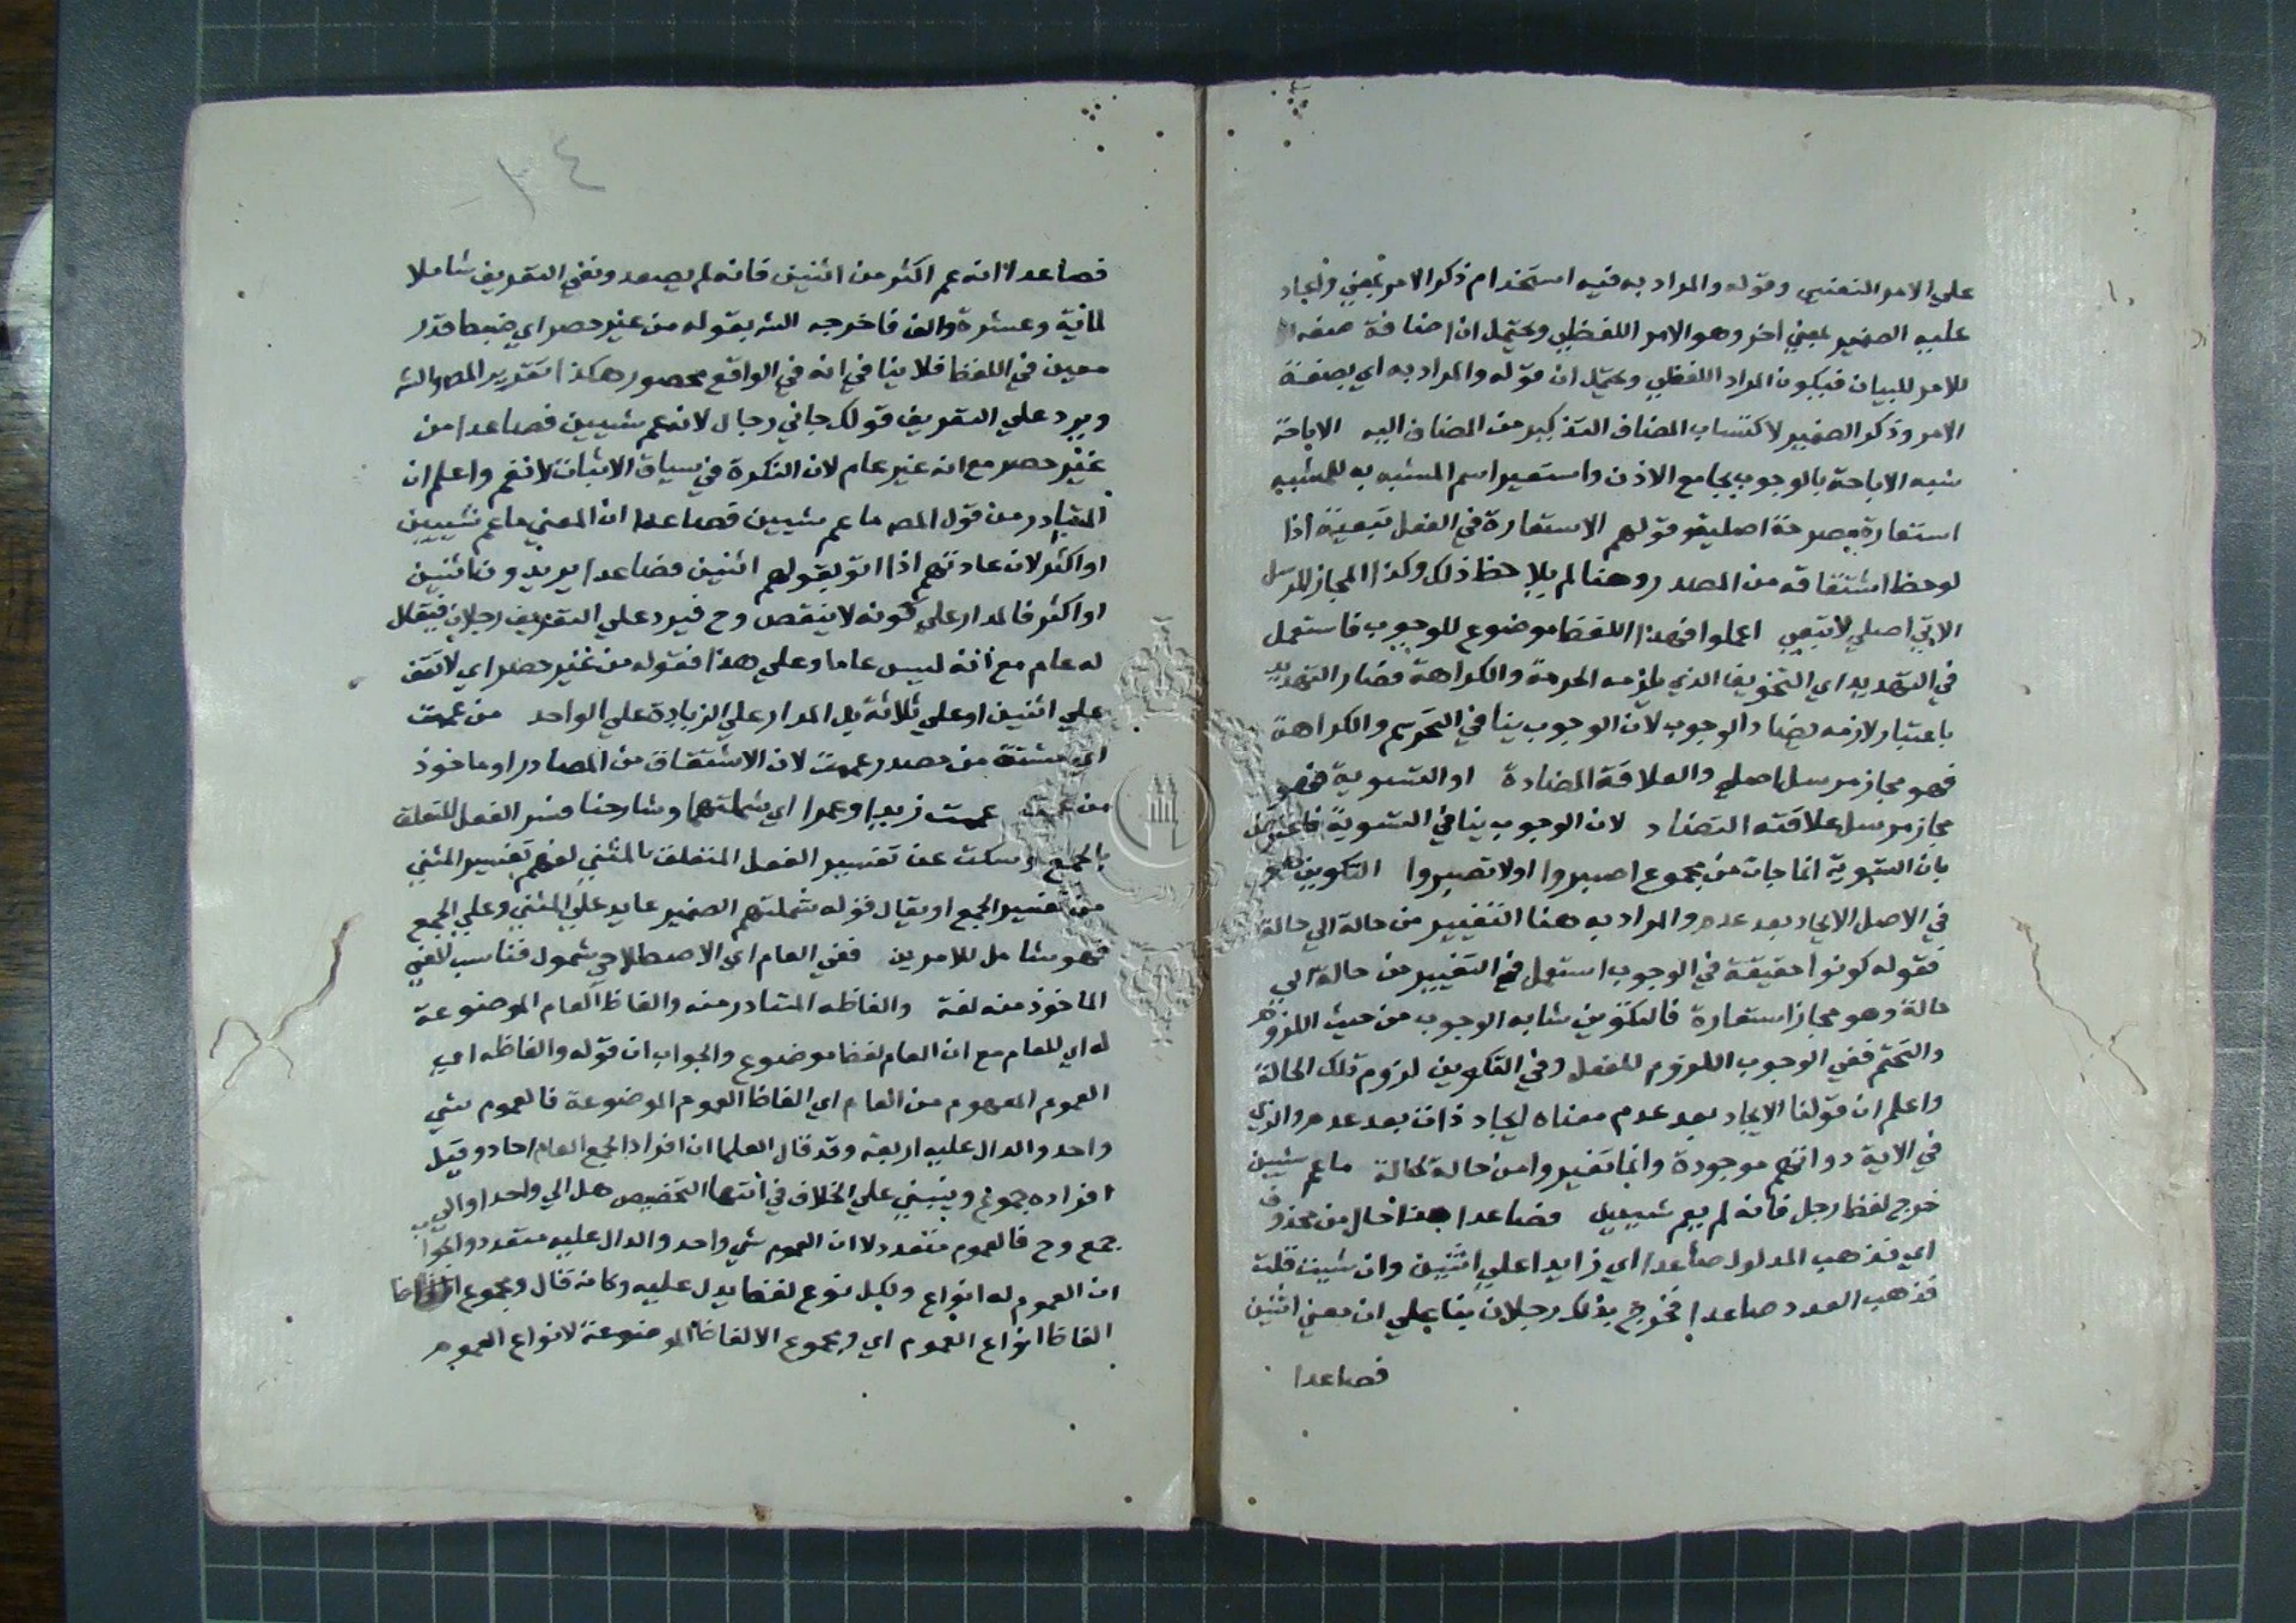 علي الامر النفسي وقوله والمراد به فيه استخدام ذكر الامر بمعني واعاد
عليه الضمير بمعني اخر وهو الامر اللفظي ويحتمل ان اضافة صيغة
للامر للبيان فيكون المراد اللفظي ويحتمل ان قوله والمراد به اي بصيغة
الامر وذكر الضمير لاكتساب المضاف التذكير من المضاف اليه الاباحة
شبه الاباحة بالوجوب بجامع الاذن واستعير اسم المشبه به للمشبه
استعارة مصرحة اصلية وقولهم الاستعارة في الفعل تبعية اذا
لوحظ اشتقاقه من المصدر وهنا لم يلاحظ ذلك وكذا المجاز المرسل
الاتي اصلي لا تبعي اعملوا فهذا اللفظ موضوع للوجوب فاستعمل
في التهديد اي التخويف الذي يلزمه الحرمة والكراهة فصار التهديد
باعتبار لازمه يضاد الوجوب لان الوجوب ينافي التحريم والكراهة
فهو مجاز مرسل اصلي والعلاقة المضادة او التسوية فهو
مجاز مرسل علاقته التضاد لان الوجوب ينافي التسوية
بان التسوية انما جات من مجموع اصبروا او لا تصبروا التكوين هو
في الاصل الايجاد بعد عدم والمراد به هنا التغيير من حالة الي حالة
فقوله كونوا حقيقة في الوجوب استعمل في التغيير من حالة الي
حالة وهو مجاز استعارة فالتكوين شابه الوجوب من حيث اللزوم
والتحتم ففي الوجوب اللزوم للفعل وفي التكوين لزوم تلك الحالة
واعلم ان قولنا الايجاد بعد عدم معناه ايجاد ذات بعد عدم والذي
في الاية ذواتهم موجودة وانما تغيروا من حالة لحالة ما عم شيين
خرج لفظ رجل فانه لم يعم شيين فصاعدا هذا حال من محذوف
اي فذهب المدلول صاعدا اي زايدا علي اثنين وان شيت قلت
فذهب العدد صاعدا فخرج بذلك رجلان بنا علي ان معني اثنين
فصاعدا
٣٤
فصاعدا انه عم اكثر من اثنين فانه لم يصعد وبقي التعريف شاملا
لمائة وعشرة والف فاخرجه الش بقوله من غير حصر اي ضبط قدر
معين في اللفظ فلا ينافي انه في الواقع محصور هكذا تقرير المص والش
ويرد علي التعريف قولك جاني رجال لانه عم شيين فصاعدا من
غير حصر مع انه غير عام لان النكرة في سياق الاثبات لا تعم واعلم ان
المتبادر من قول المص ما عم شيين فصاعدا ان المعني ما عم شيين
او اكثر لان عادتهم اذا اتو بقولهم اثنين فصاعدا يريدون اثنين
او اكثر فالمدار علي كونه لا ينقص وح فيرد علي التعريف رجلان فيقال
له عام مع انه ليس عاما وعلي هذا فقوله من غير حصر اي لا تقف
علي اثنين او علي ثلاثة بل المدار علي الزيادة علي الواحد من عممت
اي مشتق من مصدر عممت لان الاشتقاق من المصادر او ماخوذ
من عممت عممت زيدا وعمرا اي شملتهما وشارحنا فسر الفعل المتعلق
بالجمع وسكت عن تفسير الفعل المتعلق بالمثني لفهم تفسير المثني
من تفسير الجمع او يقال قوله شملتهم الضمير عايد علي المثني وعلي الجمع
فهو شامل للامرين ففي العام اي الاصطلاحي شمول فناسب المعني
الماخوذ منه لغة والفاظه المتبادر منه والفاظ العام الموضوعة
له اي للعام مع ان العام لفظ موضوع والجواب ان قوله والفاظه اي
العموم المفهوم من العام اي الفاظ العموم الموضوعة فالعموم شي
واحد والدال عليه اربعة وقد قال العلما ان افراد الجمع العام احاد وقيل
افراده جموع وينبني علي الخلاف في انتها التخصيص هل الي واحد او الي
جمع وح فالعموم متعدد لا ان العموم شي واحد والدال عليه متعدد والجواب
ان العموم له انواع ولكل نوع لفظ يدل عليه وكانه قال ومجموع الفاظ
الفاظ انواع العموم اي ومجموع الالفاظ الموضوعة لانواع العموم